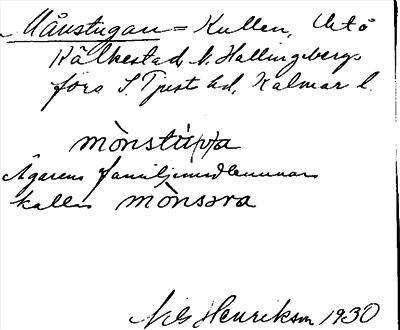 Månstugan = Kullen, Urtö
Kälkestad b. Hallingebergs
förs S. Tjust hd, Kalmar l.
mònstú(v)a
Ägarens familjemedlemmar
kallas mònsəra
Nils Henrikson 1930